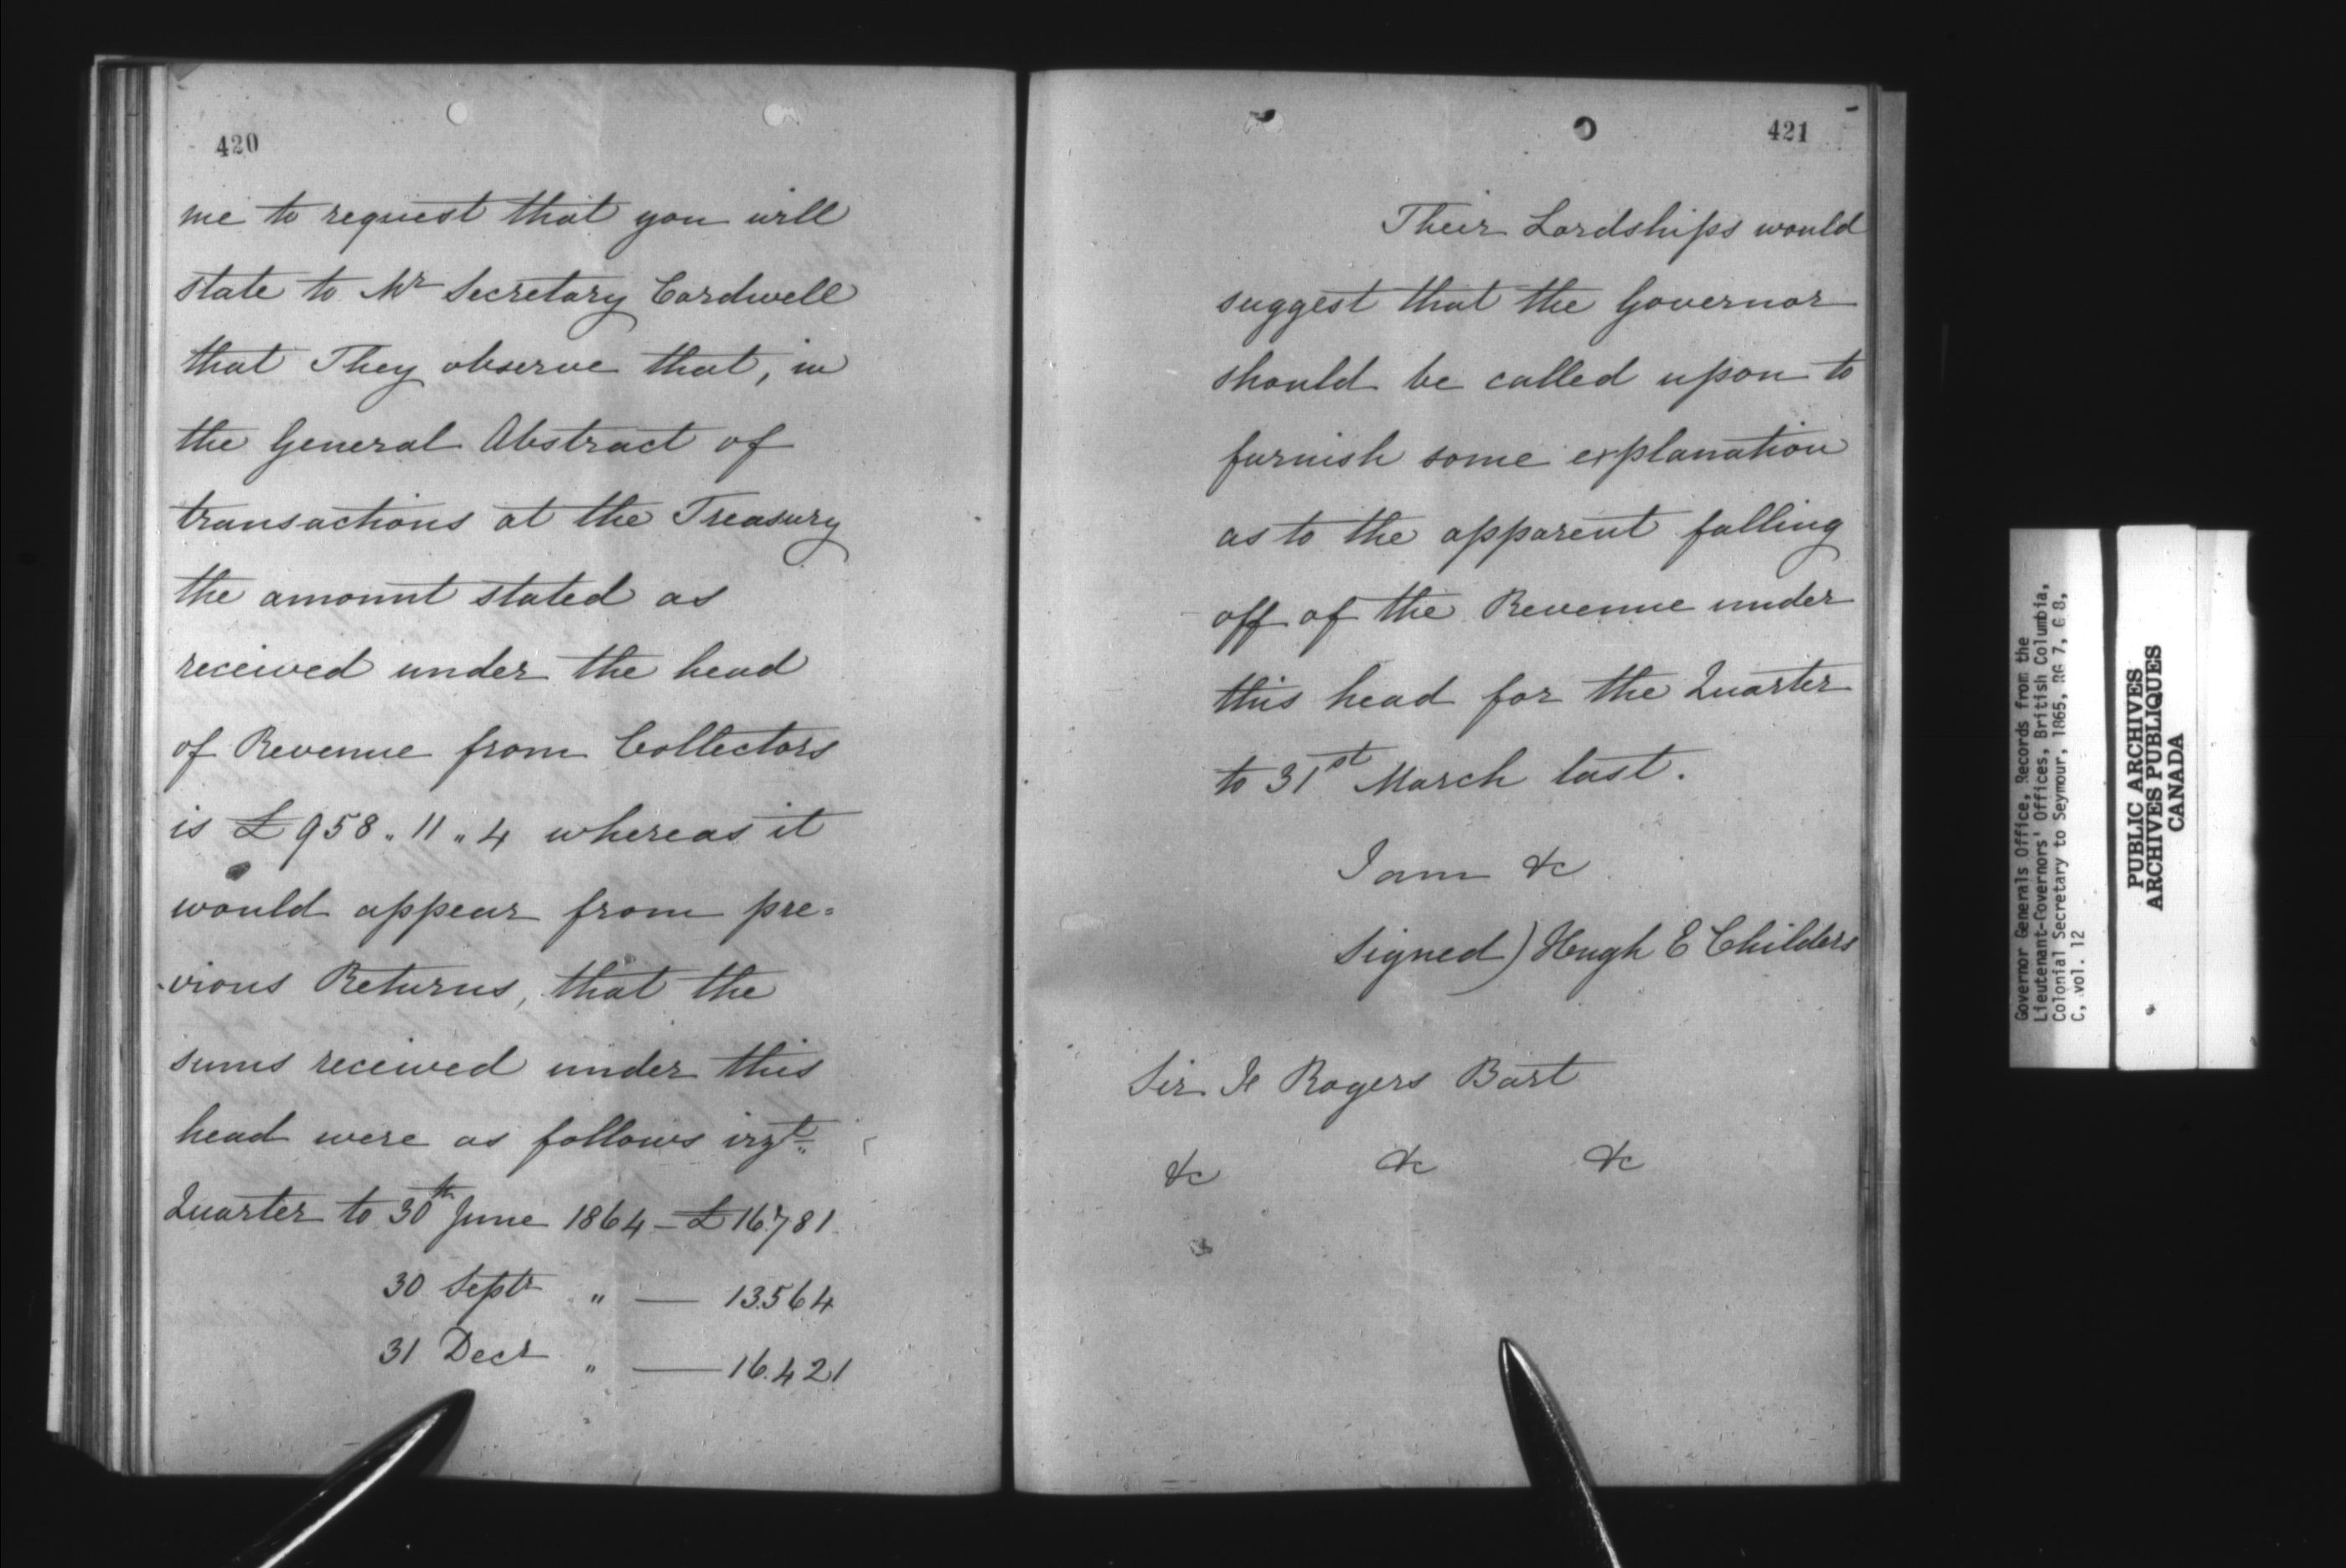 420
me to request that you will
state to Mr Secretary Cardwell
that They observe that, in
the General Abstract of
transactions at the Treasury
the amount stated as
received under the head
of Revenue from Collectors
is £958.11.4 whereas it
would appear from pre=
=vious Returns, that the
sums received under this
head were as follows vizt.
Quarter to 30th June 1864 — £16.781
30 Septr " — 13.564
31 Decr " — 16.421
421
Their Lordships would
suggest that the Governor
should be called upon to
furnish some explanation
as to the apparent falling
off of the Revenue under
this head for the Quarter
to 31st March last.
I am &c
Signed) Hugh E Childers
Sir F Rogers Bart
&c &c &c
Governor Generals Office, Records from the
Lieutenant-Governors' Offices, British Columbia,
Colonial Secretary to Seymour, 1865, RG 7, G 8,
C, vol. 12
PUBLIC ARCHIVES
ARCHIVES PUBLIQUES
CANADA